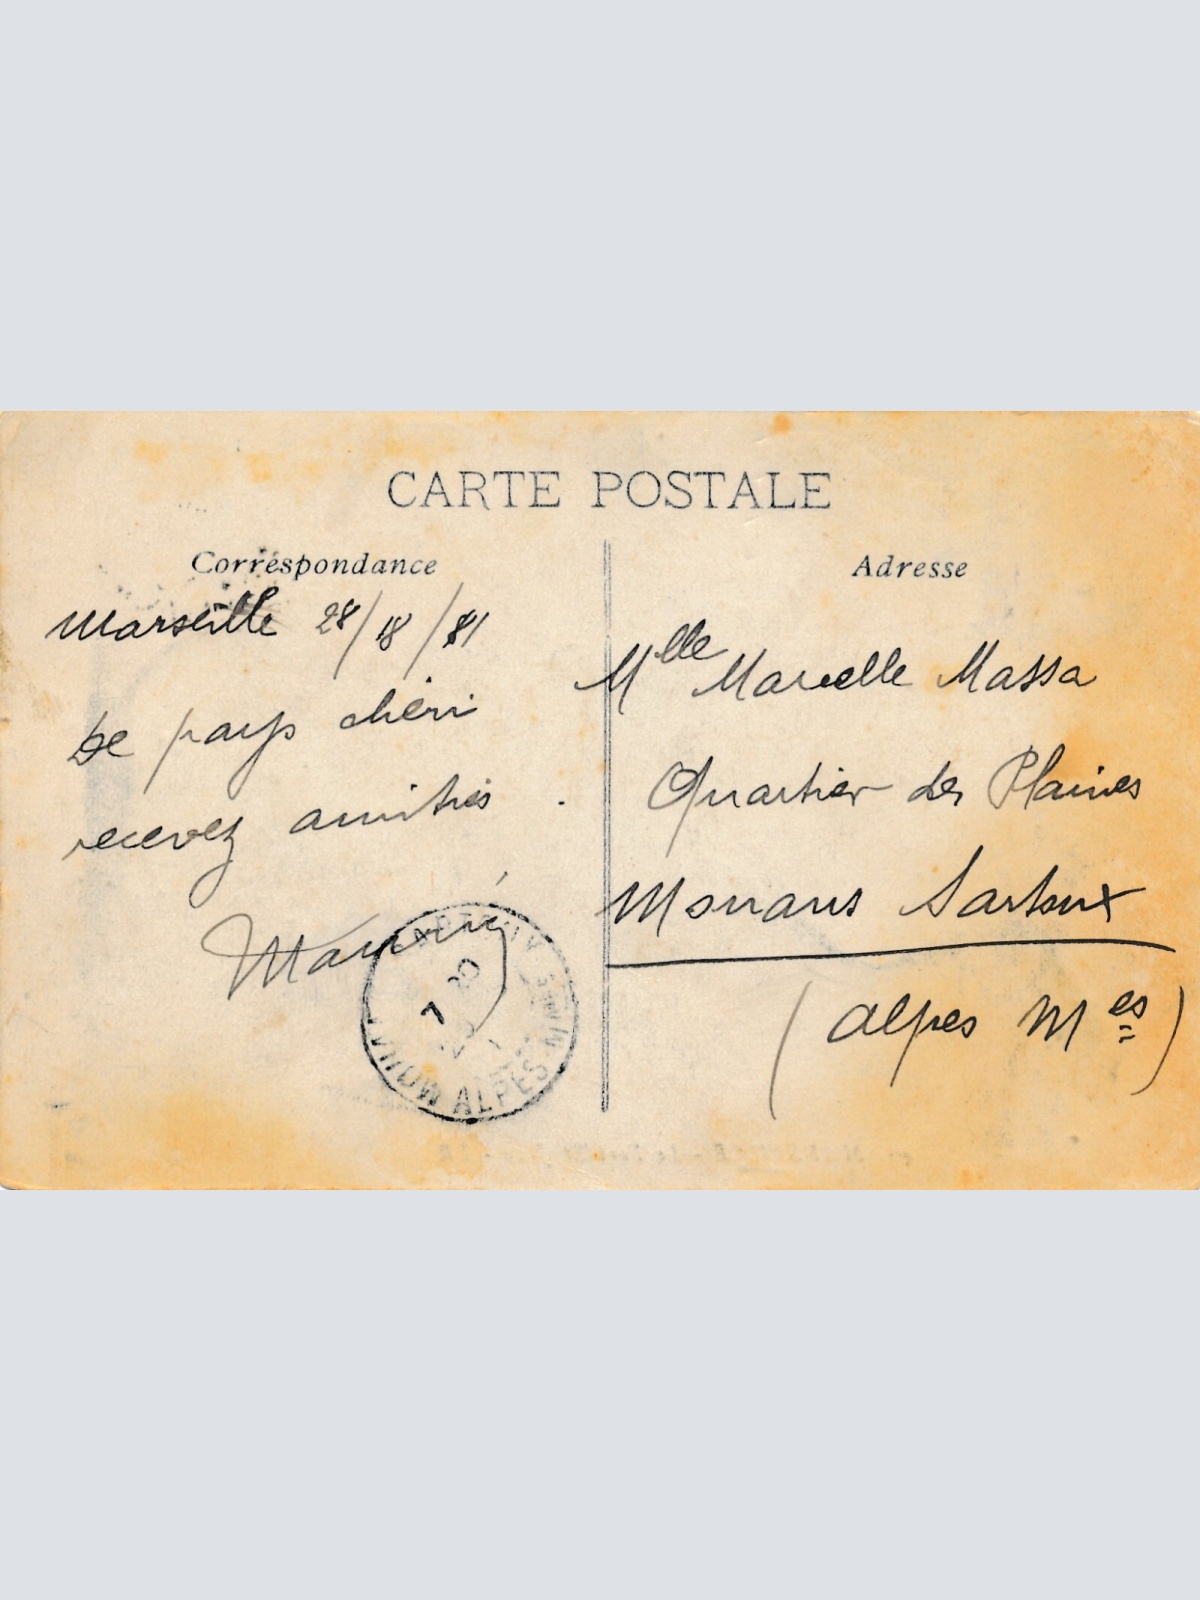 CARTE POSTALE
Correspondance
Marseille 28/18/81
De pays chéri
recevez amitiés.
Adresse
Mlle Marcelle Massa
Quartier des Plaines
Mouans Sartoux
(Alpes Mes)
ALPES
7